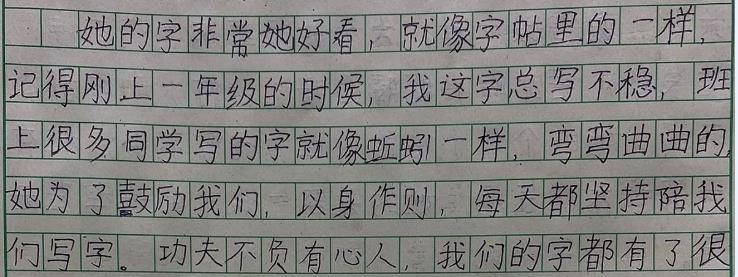 她的字非常她好看，就像字帖里的一样，
记得刚上一年级的时候，我这字总写不稳，班
上很多同学写的字就像蚯蚓一样，弯弯曲曲的，
她为了鼓励我们，以身作则，每天都坚持陪我
们写字。功夫不负有心人，我们的字都有了很